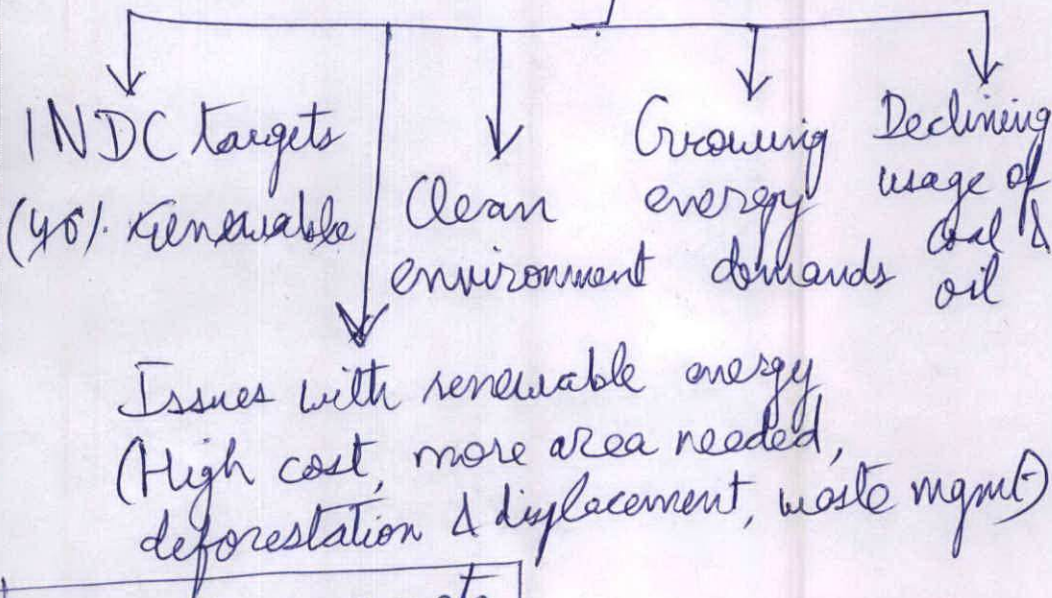 INDC targets
(40% renewable
Clean
environment
Growing
energy
demands
Declining
usage of
coal &
oil
Issues with renewable energy
(High cost, more area needed,
deforestation & displacement, waste mgmt)